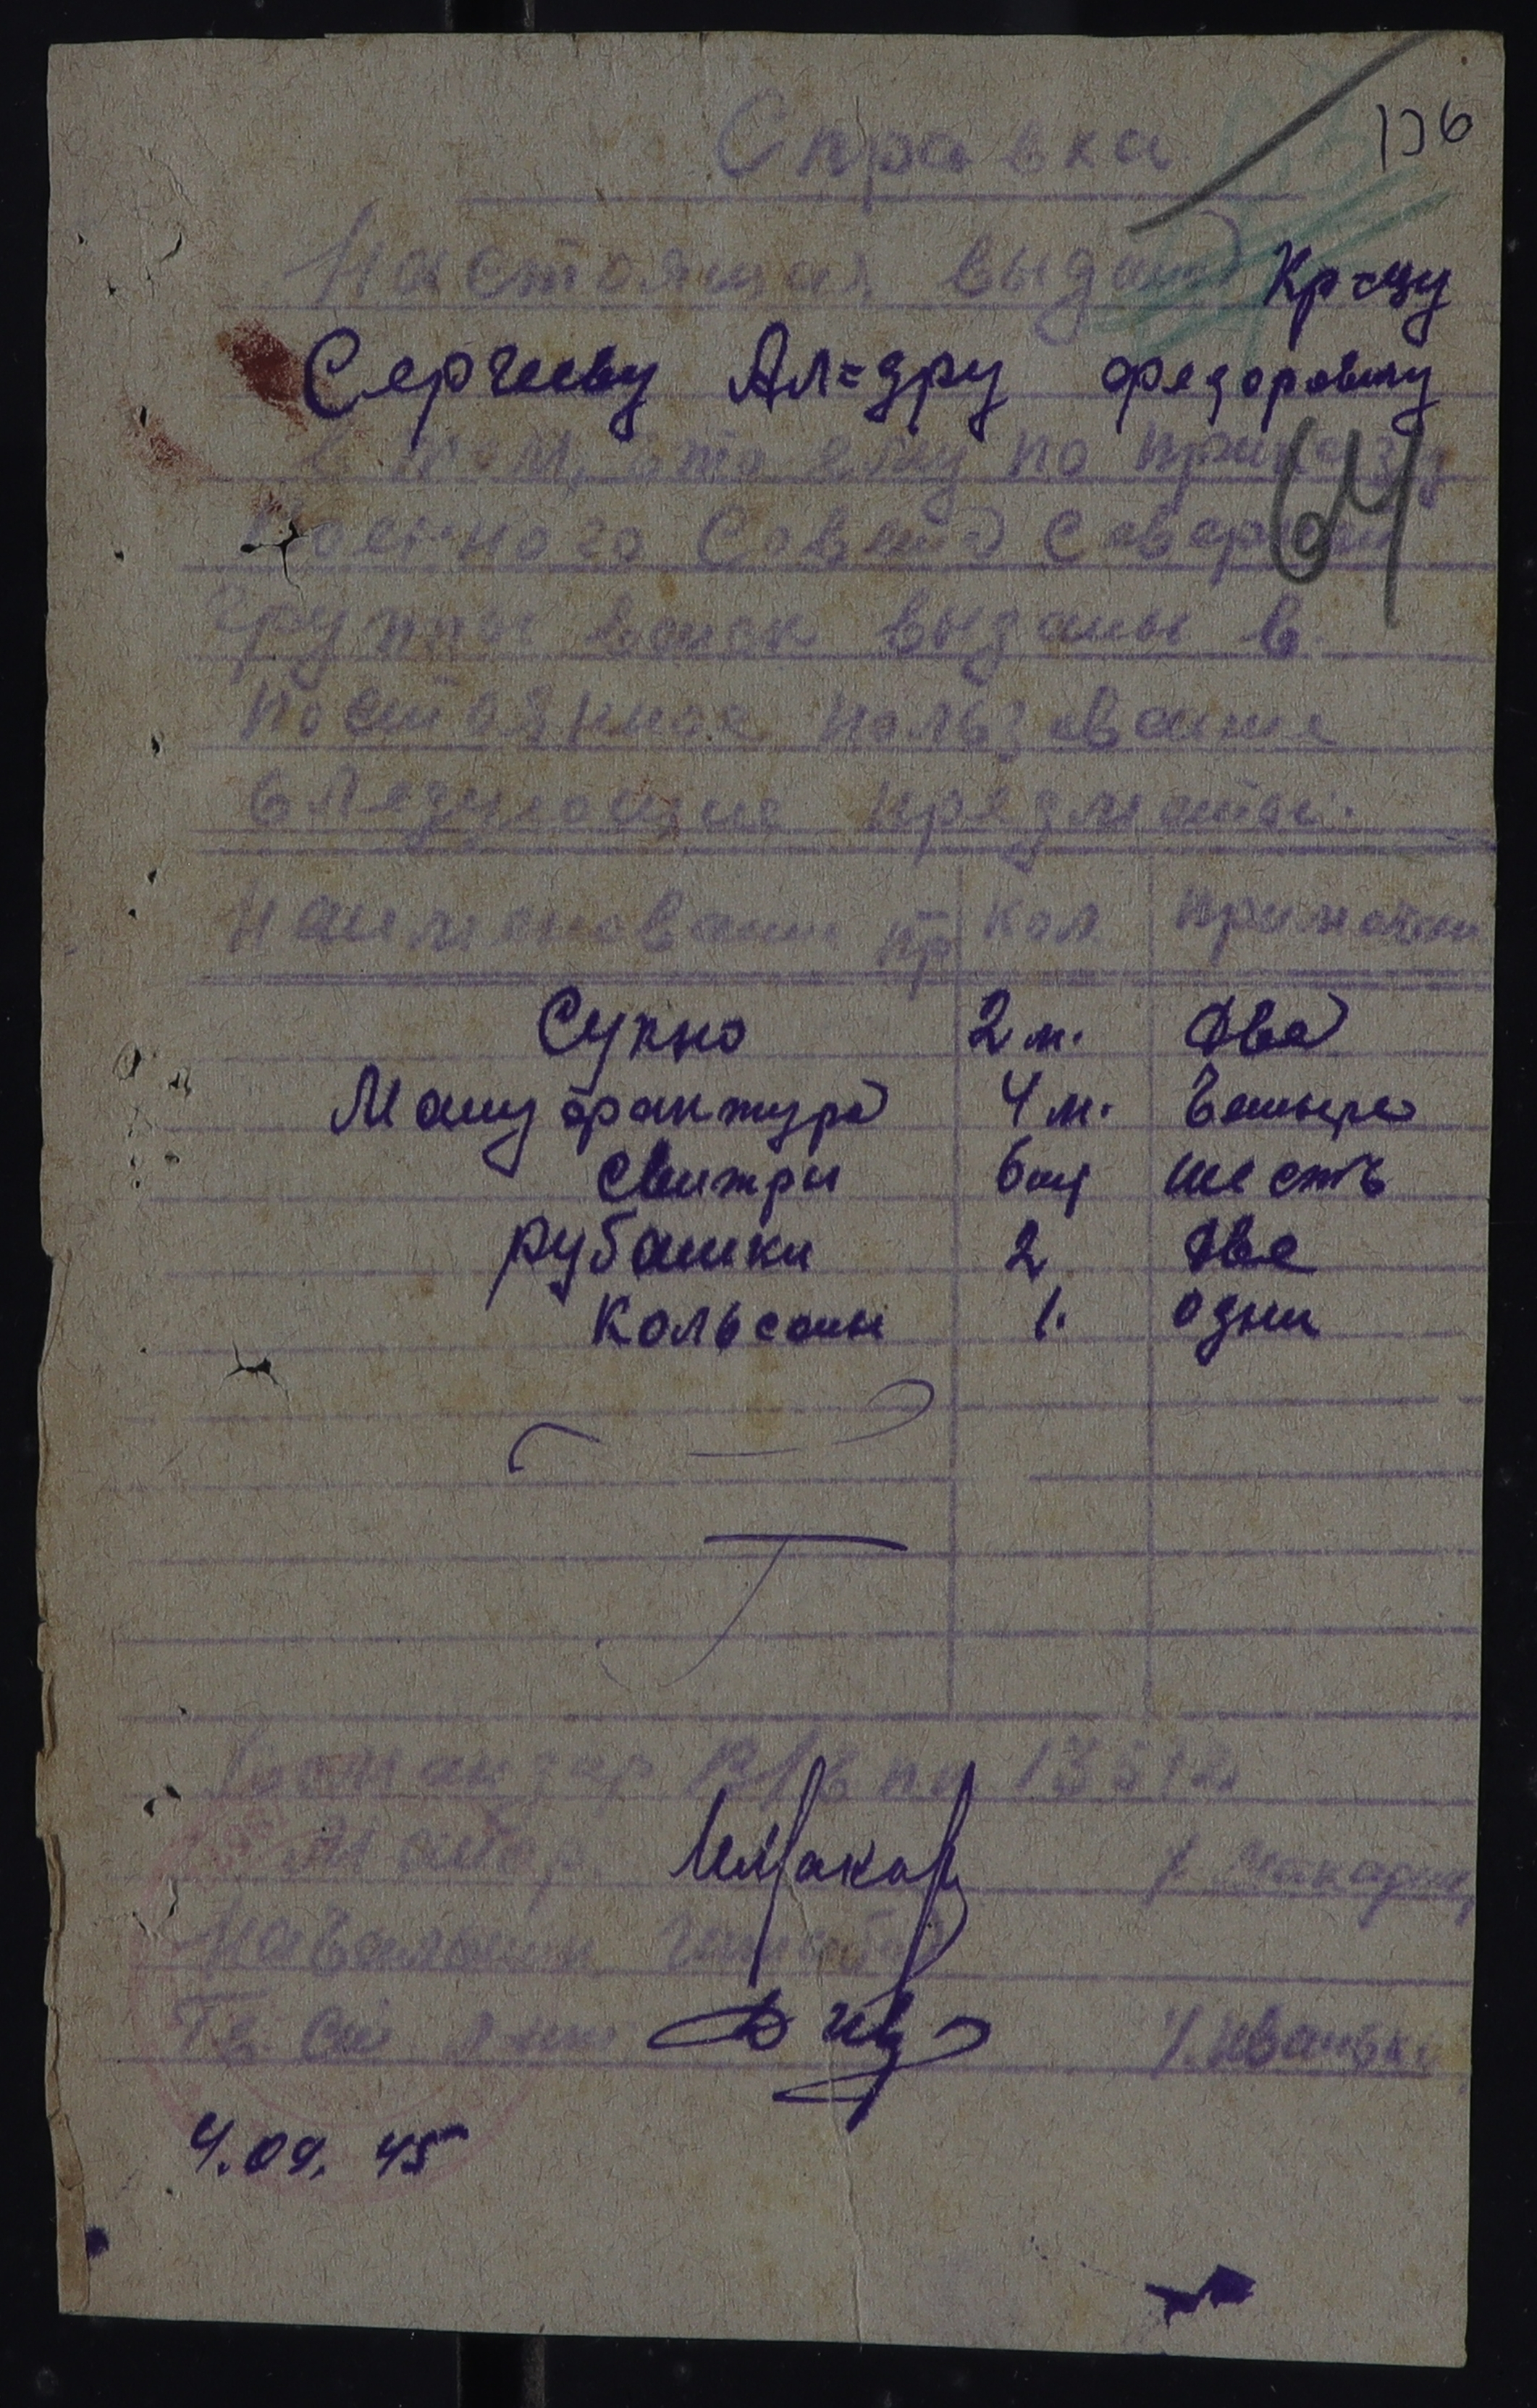 136
Справка
Настоящая выдана Кр-цу
Сергееву Ал=дру Федоровичу
в том, что ему по приказу
64
Военного Совета Северной
Группы войск выданы в
постоянное пользование
следующие предметы:
Наименование пр Кол Примечание
Сукно 2 м. Два
Мануфактура 4 м. Четыре
Свитры 6 шт шесть
Рубашки 2 Две
Кольсоны 1. одни
Командир В/ч пп 13512
Майор
Началь
/. Иваньк
4.09.45